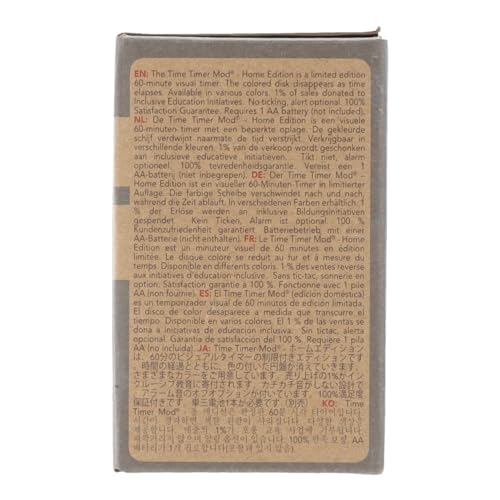 EN: The Time Timer Mod® - Home Edition is a limited edition
60-minute visual timer. The colored disk disappears as time
elapses. Available in various colors. 1% of sales donated to
Inclusive Education Initiatives. No ticking, alert optional 100%
Satisfaction Guarantee. Requires 1 AA battery (not included).
NL: De Time Timer Mod® - Home Edition is een visuele
60-minuten timer met een beperkte oplage. De gekleurde
schijf verdwijnt naarmate de tijd verstrijkt. Verkrijgbaar in
verschillende kleuren. 1% van de verkoop wordt geschonken
aan inclusieve educatieve initiatieven. Tikt niet, alarm
optioneel. 100% tevredenheidsgarantie. Vereist een 1
AA-batterij (niet inbegrepen). DE: Der Time Timer Mod® -
Home Edition ist ein visueller 60-Minuten-Timer in limitierter
Auflage. Die farbige Scheibe verschwindet nach und nach,
während die Zeit abläuft. In verschiedenen Farben erhältlich. 1
% der Erlöse werden an inklusive Bildungsinitiativen
gespendet. Kein Ticken, Alarm ist optional. 100 %
Kundenzufriedenheit garantiert. Batteriebetrieb mit einer
AA-Batterie (nicht enthalten). FR: Le Time Timer Mod® - Home
Edition est un minuteur visuel de 60 minutes en édition
limitée. Le disque coloré se réduit au fur et à mesure du
temps. Disponible en differents coloris. 1 % des ventes reverse
aux initiatives d'education inclusive. Sans tic-tac, sonnerie en
option. Satisfaction garantie à 100 %. Fonctionne avec 1 pile
AA (non fournie). ES: El Time Timer Mod® (edición doméstica)
es un temporizador visual de 60 minutos de edición limitada.
El disco de color desaparece a medida que transcurre el
tiempo. Disponible en varios colores. El 1 % de las ventas se
dona a iniciativas de educación inclusiva. Sin tictac, alerta
optional. Garantía de satisfacción del 100 %. Requiere 1 pila
AA (no incluida). JA: Time Timer Mod® - ホームエディション
は、60分のビジュアルタイマーの制限付きエディションです
。時間の経過とともに、色の付いた円盤が消えていきます。さ
まざまなカラーをご用意しています。売り上げの1%がイン
クルーシブ教育に寄付されます。カチカチ音がしない設計で
アラーム音のオプオプションが付いています。100%満足度
保証付きです。単三電池1本が必要です（別売）。 KO: Time
Timer Mod® - 홈 에디션은 한정판 60분 시각 타이머입니다.
시간이 경과하면 색깔 원판이 사라집니다. 다양한 색상
제공. 매출의 1% 포용 교육 사업에 기부됩니다.
째깍거리지 않으며 알림 옵션이 있습니다. 100% 만족 보장. AA
배터리가 1개 필요합니다(포함돼 있지 않음).